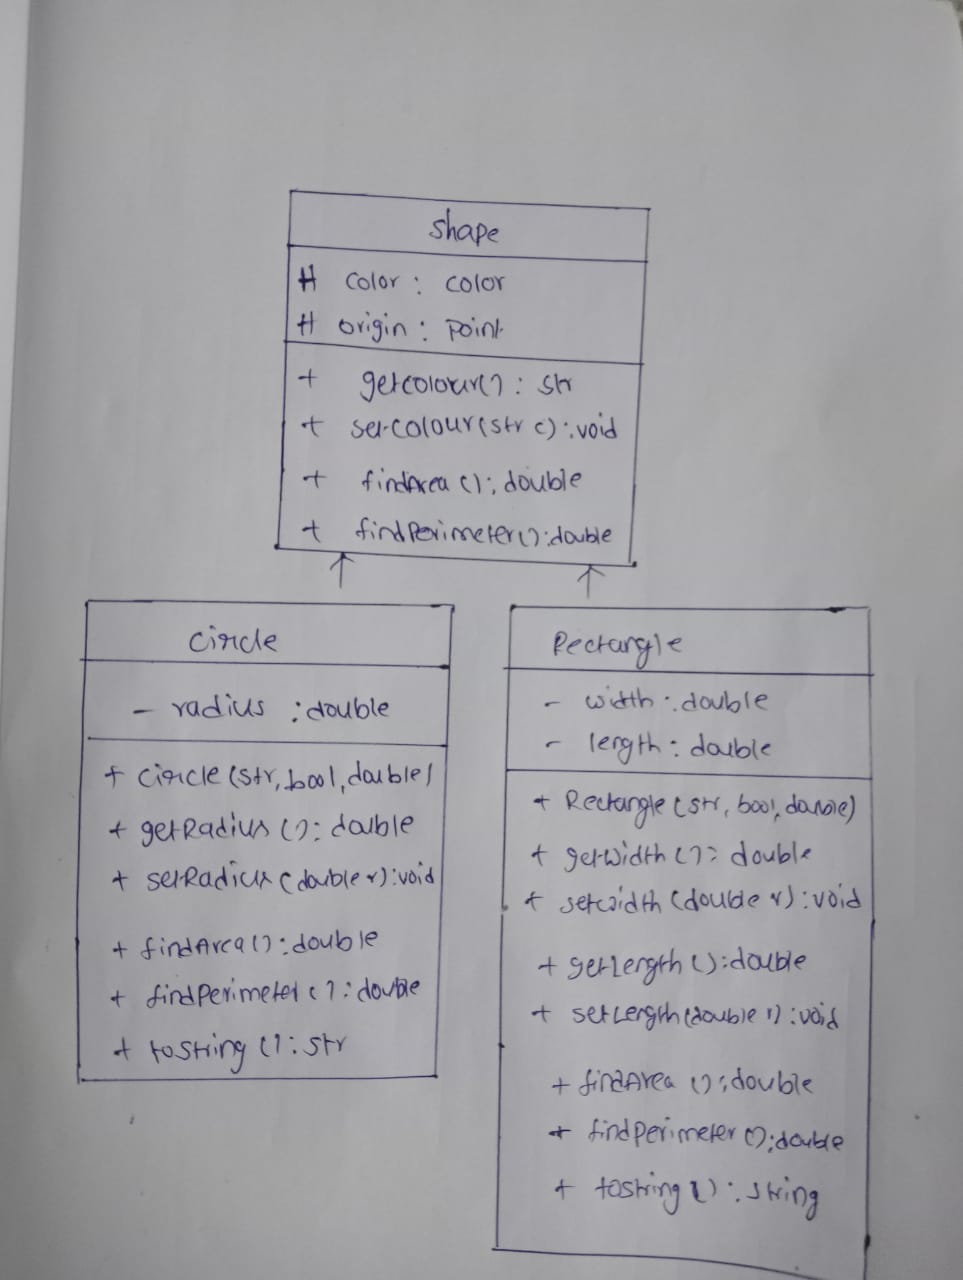 shape
# color : color
# origin : point
+ getcolour() : str
+ setcolour(str c) : void
+ findArea () : double
+ findPerimeter() : double
circle
- radius : double
+ circle (str, bool, double)
+ getRadius () : double
+ setRadius (double r) : void
+ findArea() : double
+ findperimeter () : double
+ toString () : str
Rectangle
- width : double
- length : double
+ Rectangle (str, bool, double)
+ getwidth () : double
+ setwidth (double r) : void
+ getLength () : double
+ setLength (double r) : void
+ findArea () : double
+ findperimeter () : double
+ toString () : string